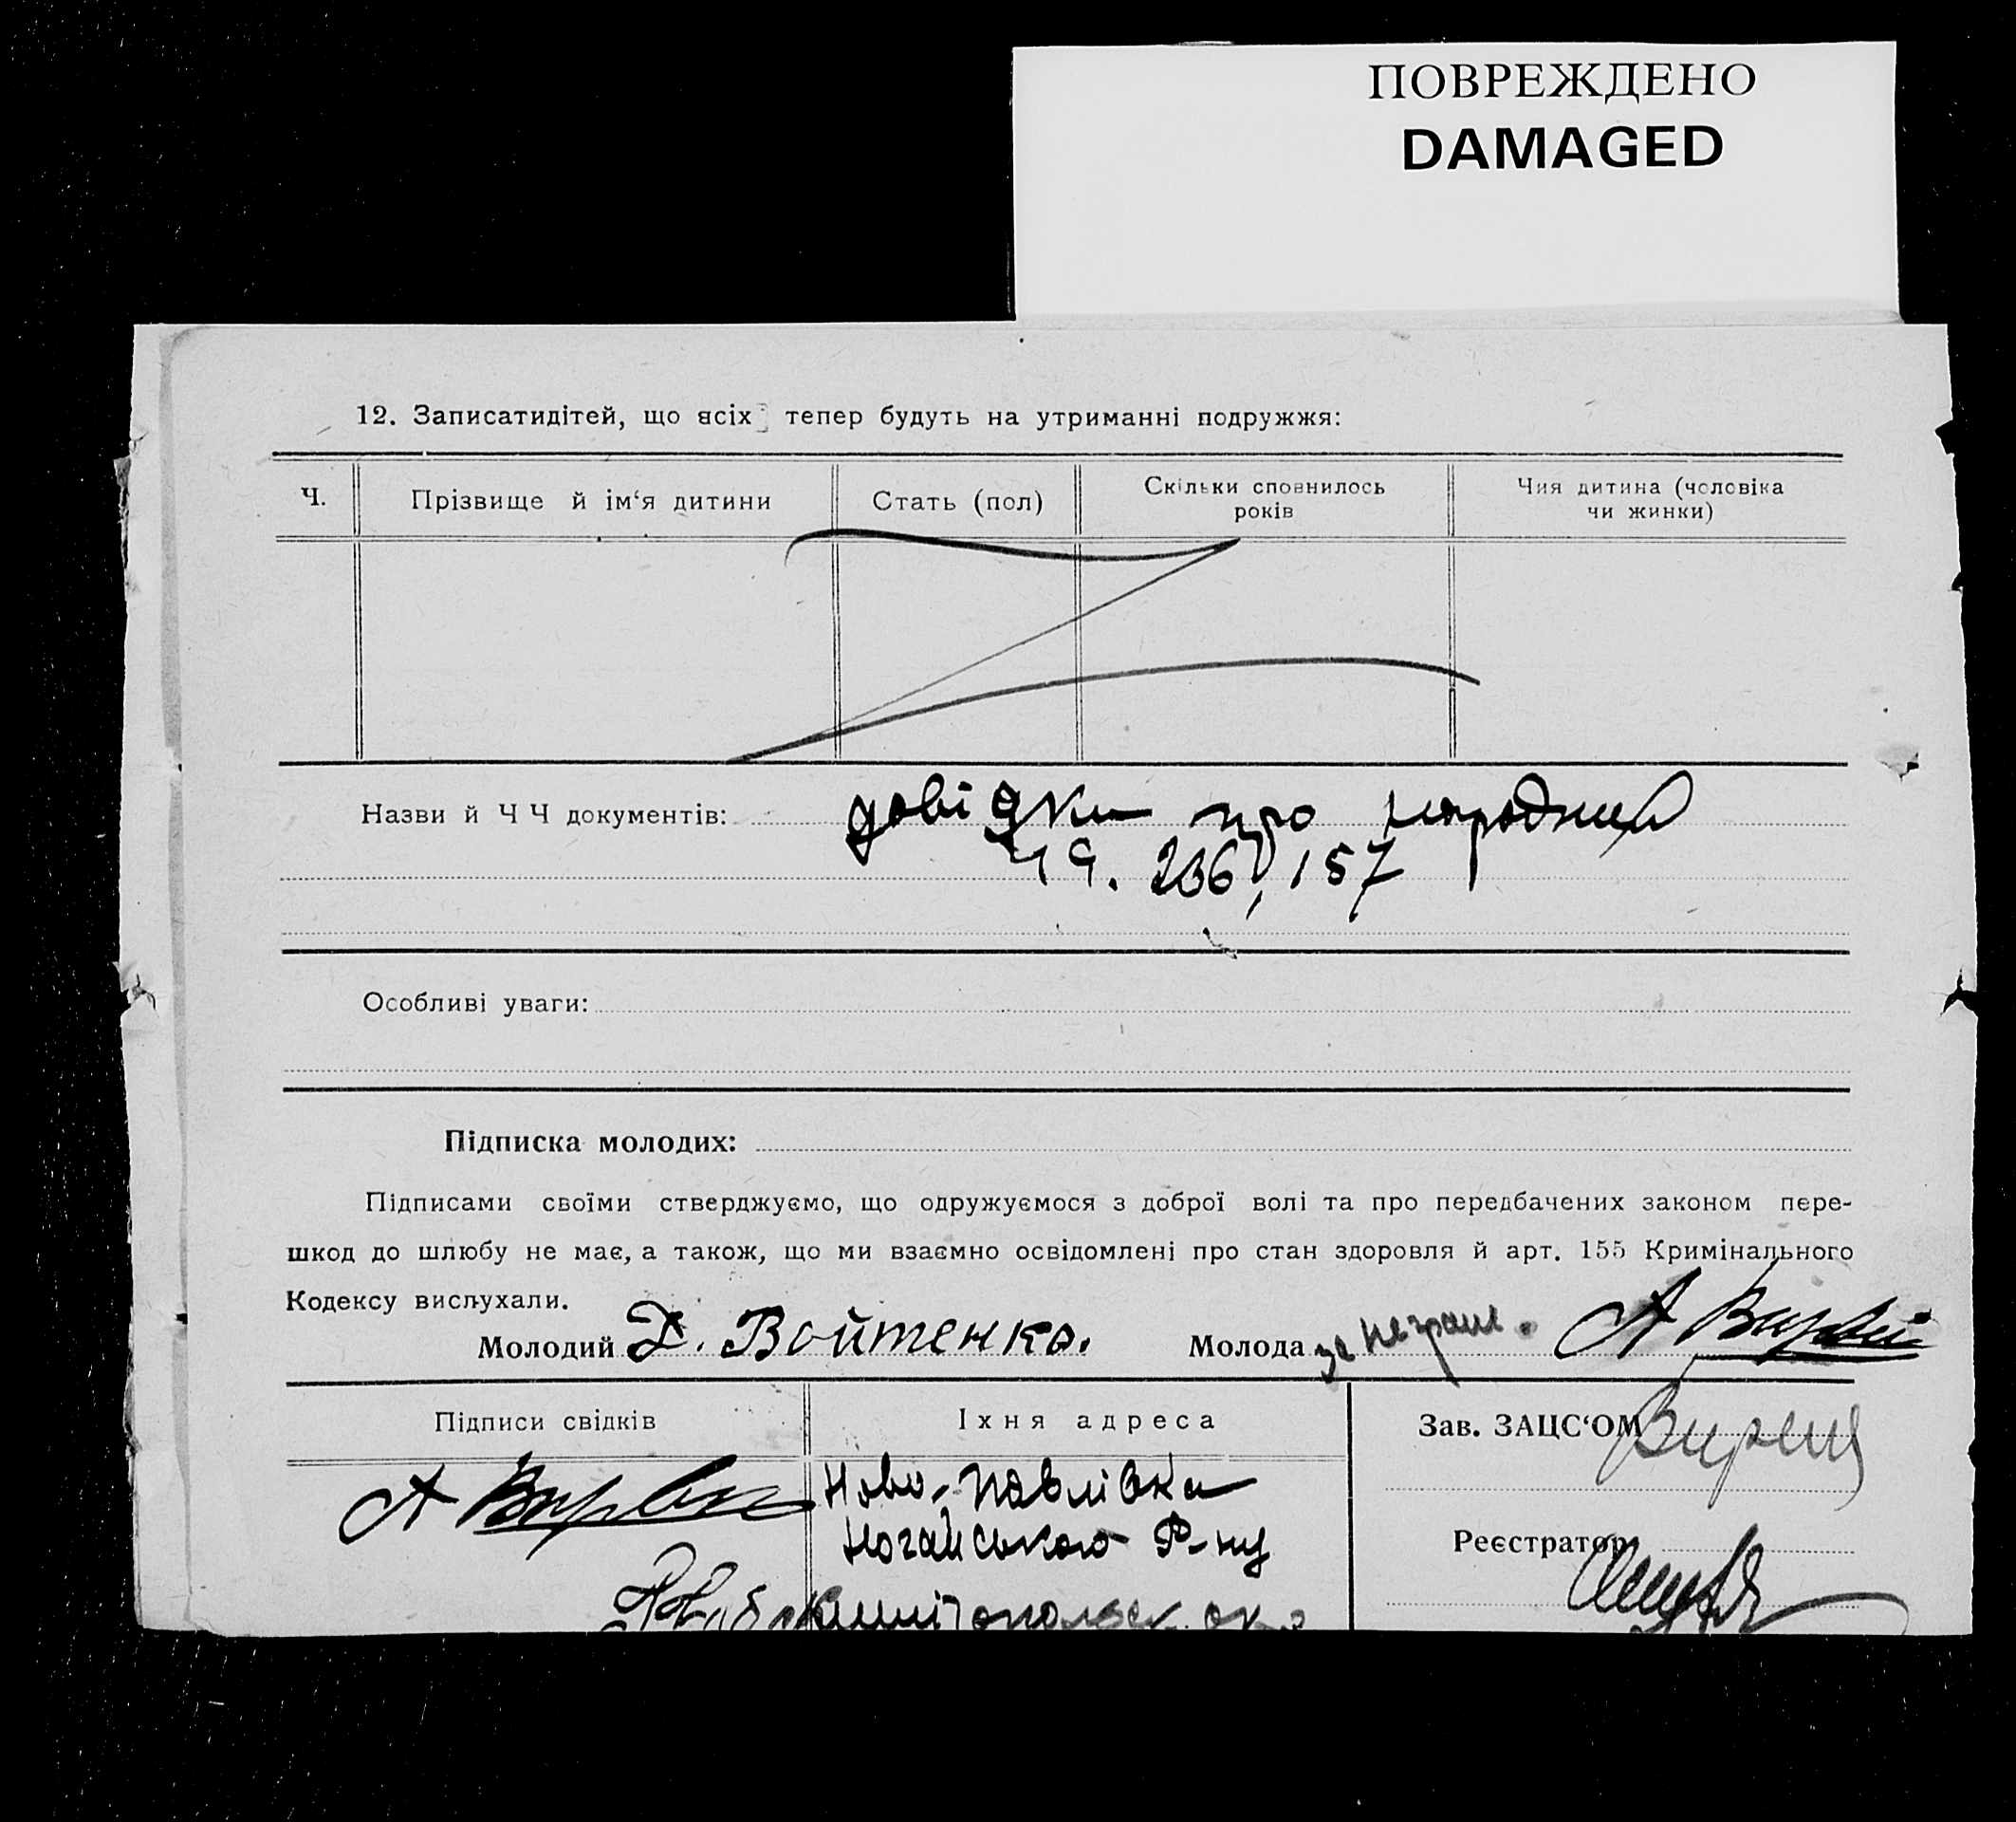 ПОВРЕЖДЕНО
DAMAGED
12. Записатидітей, що всіх тепер будуть на утриманні подружжя:
Ч.
Прізвище й ім‘я дитини
Стать (пол)
Скільки сповнилось
років
Чия дитина (чоловіка
чи жинки)
Назви й Ч Ч документів: довідки про народжен
ЧЧ. 236, 157
Особливі уваги:
Підписка молодих:
Підписами своїми стверджуємо, що одружуємося з доброї волі та про передбачених законом пере-
шкод до шлюбу не має, а також, що ми взаємно освідомлені про стан здоровля й арт. 155 Кримінального
Кодексу вислухали.
Молодий Д. Войтенко. Молода за неграм. А
Підписи свідків
Їхня адреса
Зав. ЗАЦС‘ОМ
А
Ново-Павлівка
Ногайського Р-ну
Реєстратор